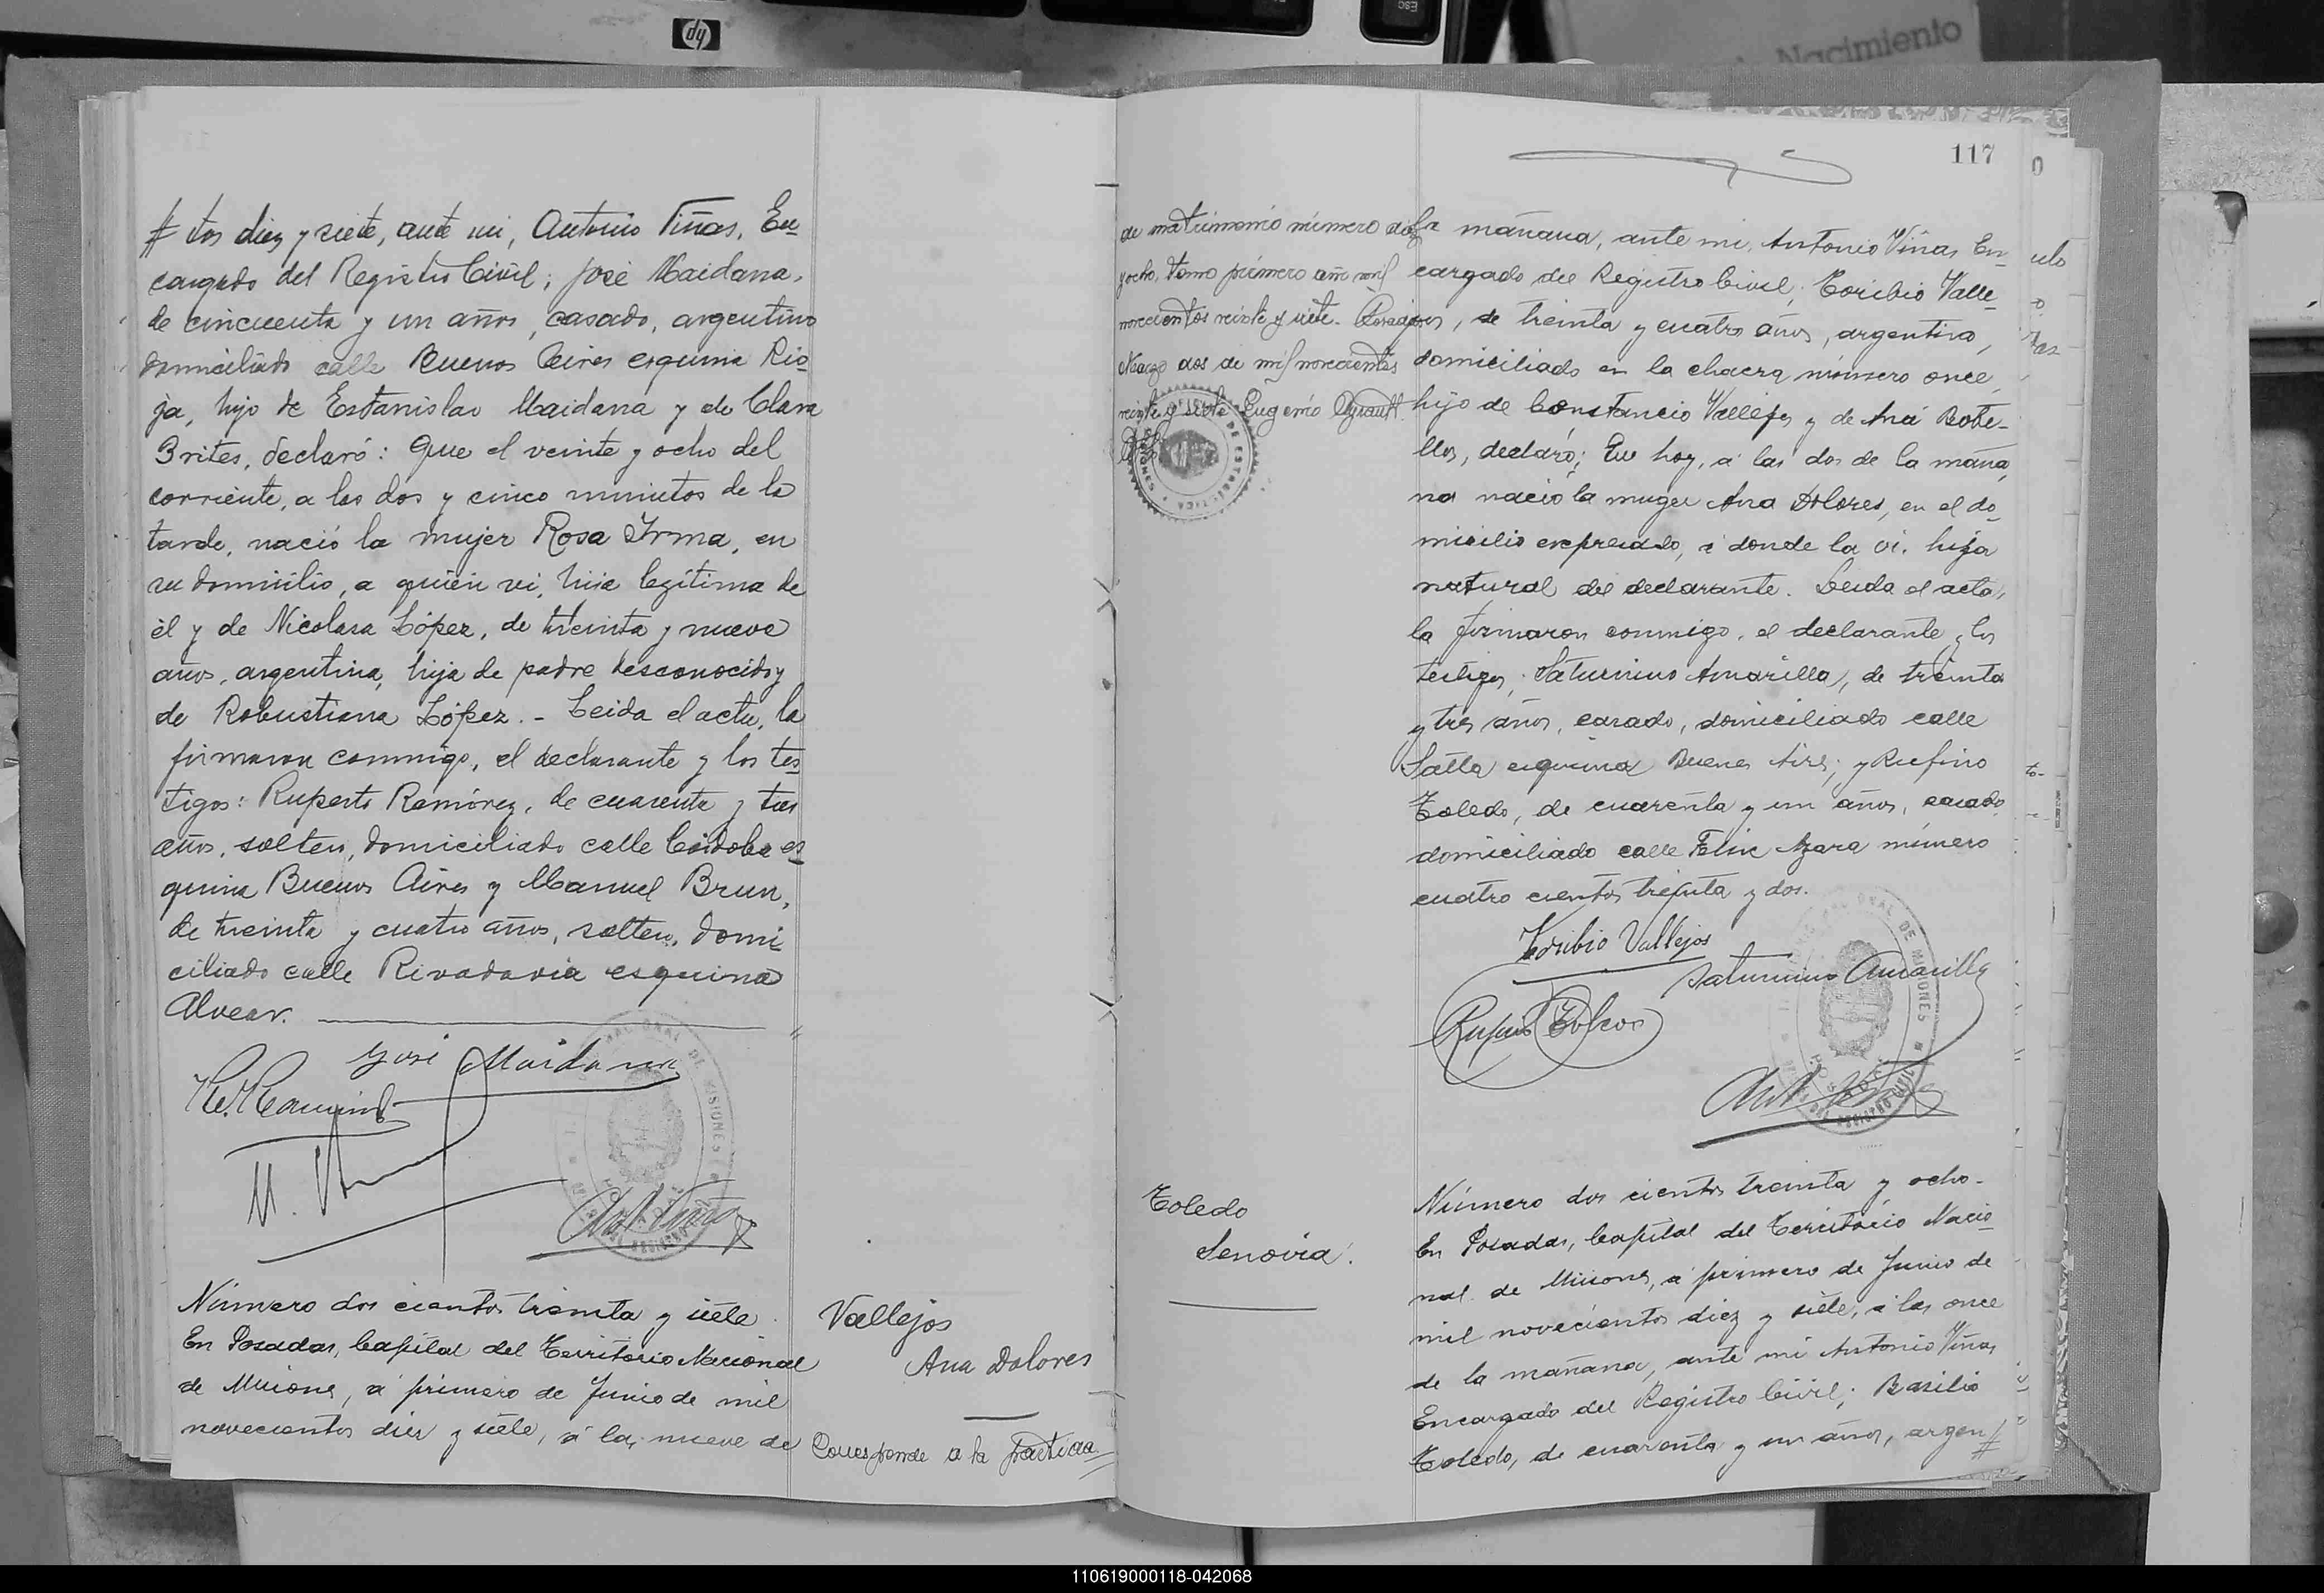 Nacimiento
117
tos diez y siete, ante mi, Antonio Viñas, En
cargado del Registro Civil; José Maidana,
de cincuenta y un años, casado, argentino
domiciliado calle Buenos Aires esquina Rio
ja, hijo de Estanislao Maidana y de Clara
Brites, declaró: Que el veinte y ocho del
corriente, a las dos y cinco minutos de la
tarde, nació la mujer Rosa Irma, en
su domicilio, a quien vi, hija legítima de
él y de Nicolasa López, de treinta y nueve
años, argentina, hija de padre desconocido y
de Robustiana López. - Leida el acta, la
firmaron conmigo, el declarante y los tes
tigos: Ruperto Ramírez, de cuarenta y tres
años, soltero, domiciliado calle Córdoba es
quina Buenos Aires y Manuel Brun,
de treinta y cuatro años, soltero, domi
ciliado calle Rivadavia esquina
Alvear.
José Maidana
Número dos cientos treinta y siete.
En Posadas, Capital del Territorio Nacional
de Misiones, á primero de Junio de mil
novecientos diez y siete, á las nueve de
Vallejos
Ana Dolores
Corresponde a la partida
de matrimonio número diez
y ocho, tomo primero año mil
novecientos veinte y siete. Posadas,
Marzo dos de mil novecientos
veinte y siete Eugenio
la mañana, ante mi, Antonio Viñas En
cargado del Registro Civil; Toribio Valle
jos, de treinta y cuatro años, argentino,
domiciliado en la chacra número once,
hijo de Constancio Vallejos y de Ana Bote-
llo, declaró; Que hoy, á las dos de la maña
na nació la muger Ana Dolores, en el do
micilio expresado, á donde la vi. hija
natural del declarante. Leida el acta,
la firmaron conmigo, el declarante y los
testigos; Saturnino Amarilla, de treinta
y tres años, casado, domiciliado calle
Salta esquina Buenos Aires; y Rufino
Toledo, de cuarenta y un años, casado,
domiciliado calle Felix Azara número
cuatro cientos treinta y dos.
Toribio Vallejos
Saturnino Amarilla
Toledo
Senovia.
Número dos cientos treinta y ocho-
En Posadas, Capital del Territorio Nacio
nal de Misiones, á primero de Junio de
mil novecientos diez y siete, á las once
de la mañana, ante mi Antonio Viñas
Encargado del Registro Civil; Basilio
Toledo, de cuarenta y un años, argen
110619000118-042068